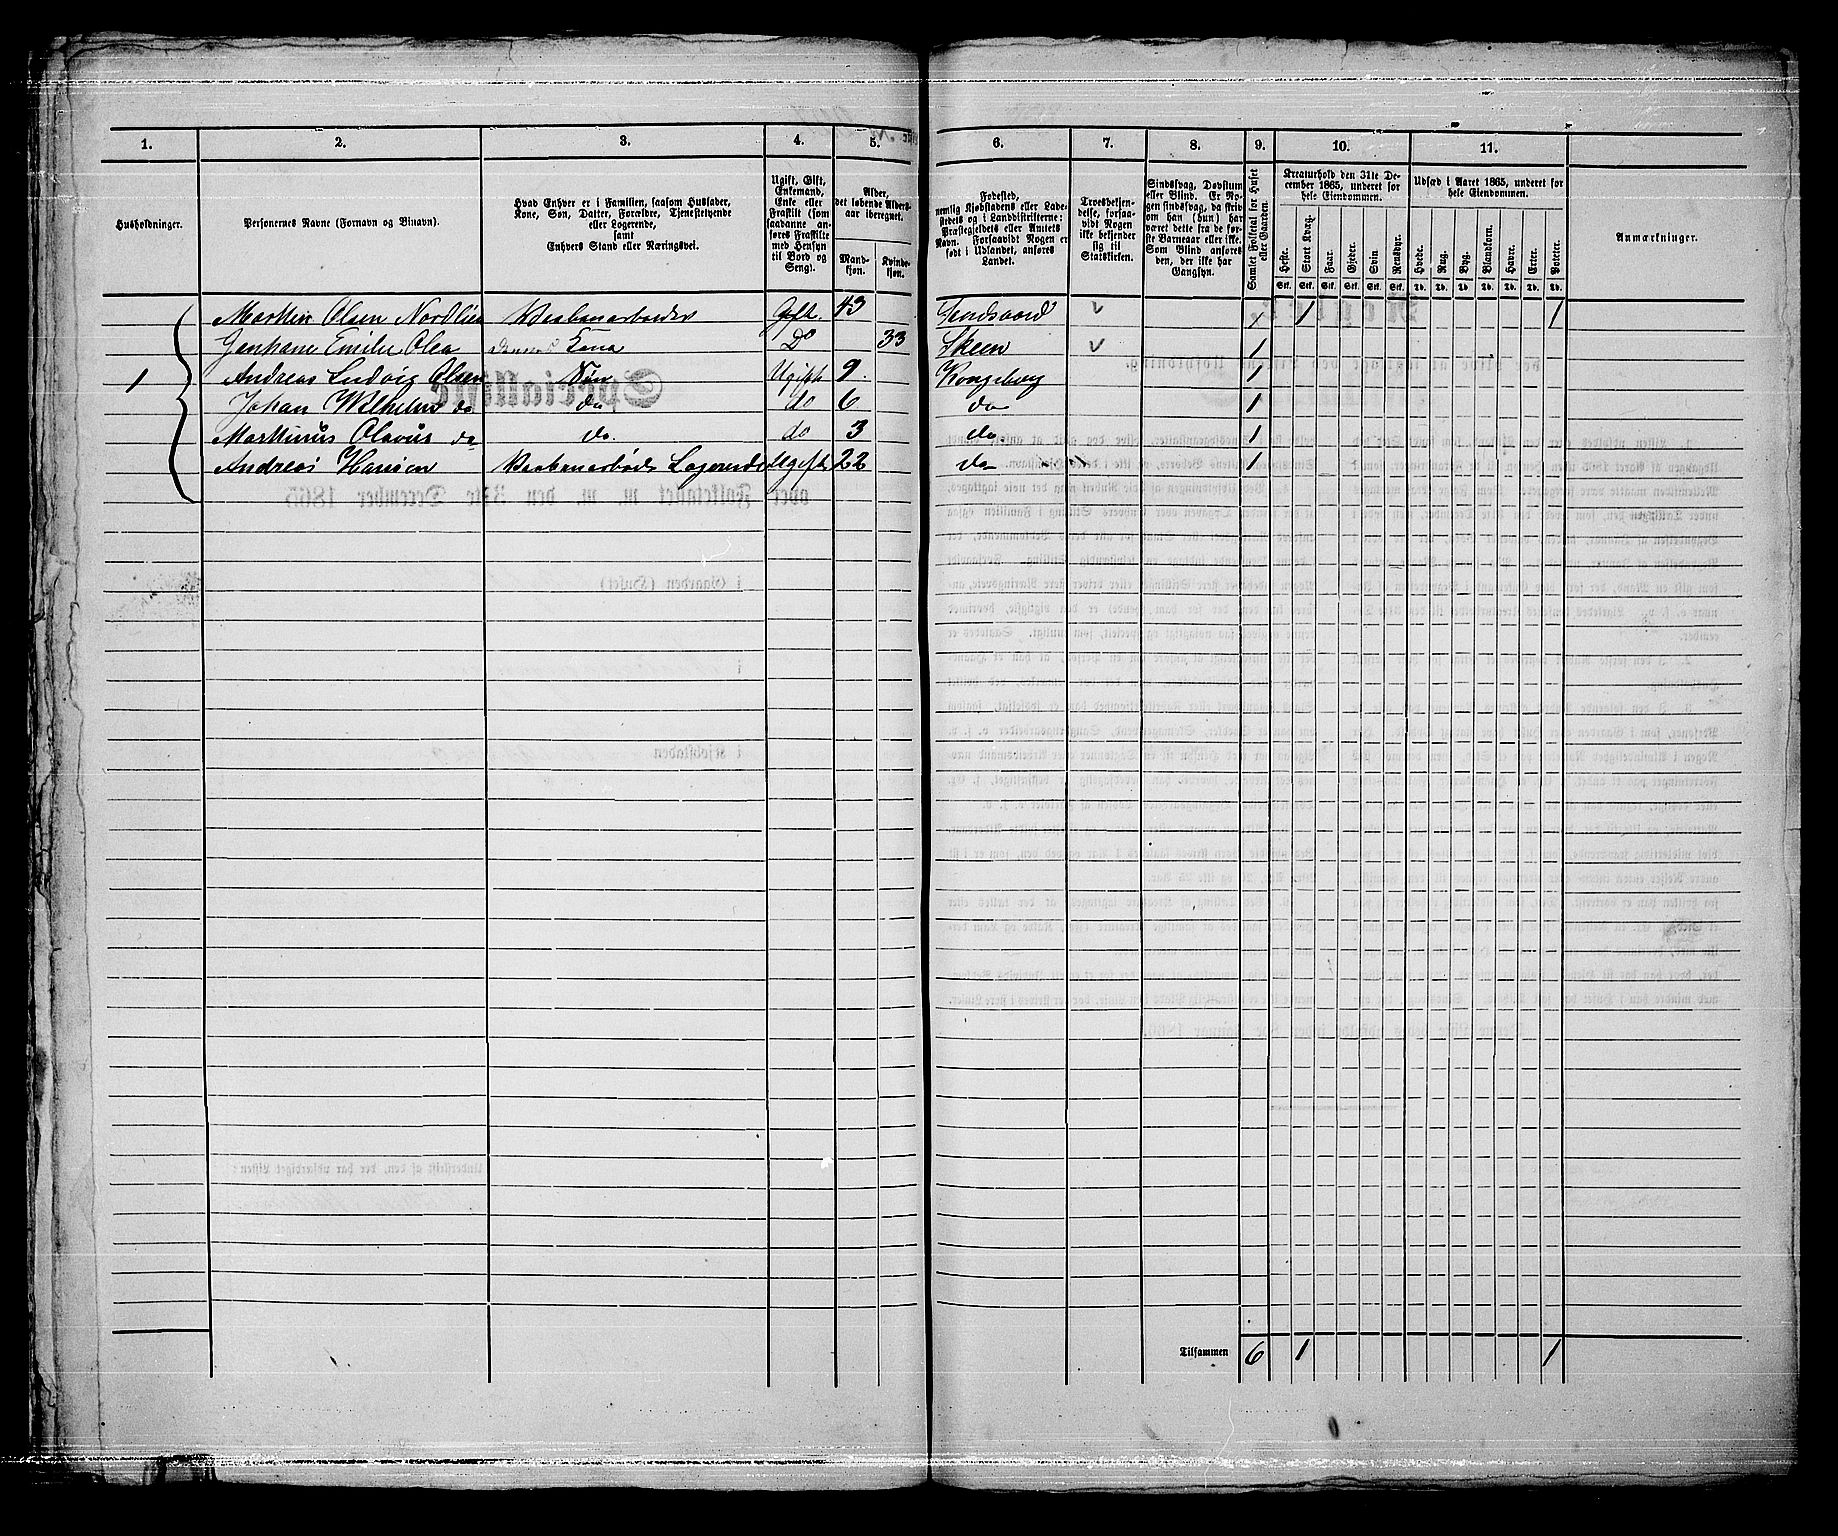 1. 2. 3. 4. 5. 6. 7. 8. 9. 10. 11.
Husholdninger.
Personernes Navne (Fornavn og Binavn).
Hvad Enhver er i Familien, saasom Husfader,
Kone, Søn, Datter, Forældre, Tjenestetyende
eller Logerende,
samt
Enhvers Stand eller Næringsvei.
Ugift, Gift,
Enkemand,
Enke eller
Fraskilt (som
saadanne an-
føres Fraskilte
med Hensyn
til Bord og
Seng).
Alder,
det løbende Alders-
aar iberegnet.
Mand-
kjøn.
Kvinde-
kjøn.
Fødested,
nemlig Kjøbstadens eller Lade-
stedets og i Landdistrikterne:
Præstegjeldets eller Amtets
Navn. Forsaavidt Nogen er
født i Udlandet, anføres
Landet.
Troesbekjen-
delse, forsaa-
vidt Nogen
ikke bekjender
sig til
Statskirken.
Sindssvag, Døvstum
eller Blind. Er No-
gen sindssvag, da skriv
om han (hun) har
været dette fra de før-
ste Barneaar eller ikke.
Som Blind anføres
den, der ikke har
Gangsyn.
Samlet Folketal for Huset
eller Gaarden.
Kreaturhold den 31te De-
cember 1865, underet for
hele Eiendommen.
Heste. Stort Kvæg. Faar. Gjeder. Svin Rensdyr.
Stk. Stk. Stk. Stk. Stk. Stk.
Udsæd i Aaret 1865, underet for
hele Eiendommen.
Hvede. Rug. Byg. Blandkorn. Havre. Erter. Poteter.
Td. Td. Td. Td. Td. Td. Td.
Anmærkninger.
Martin Olsen Nordlien Vaabenarbeider Gift. 43 1 1 1
Emilie Olea Kone Do 33 Skeen 1
1 Andreas Ludvig Olsen Søn Ugift 9. Kongsberg 1
Johan Wilhelm do do do 6 do 1
Martinus Olavus do do. do 3 do 1
Andreas Hansen Vaabenarbeid. Logerende Ugift 22 do 1
Tilsammen 6 1 1